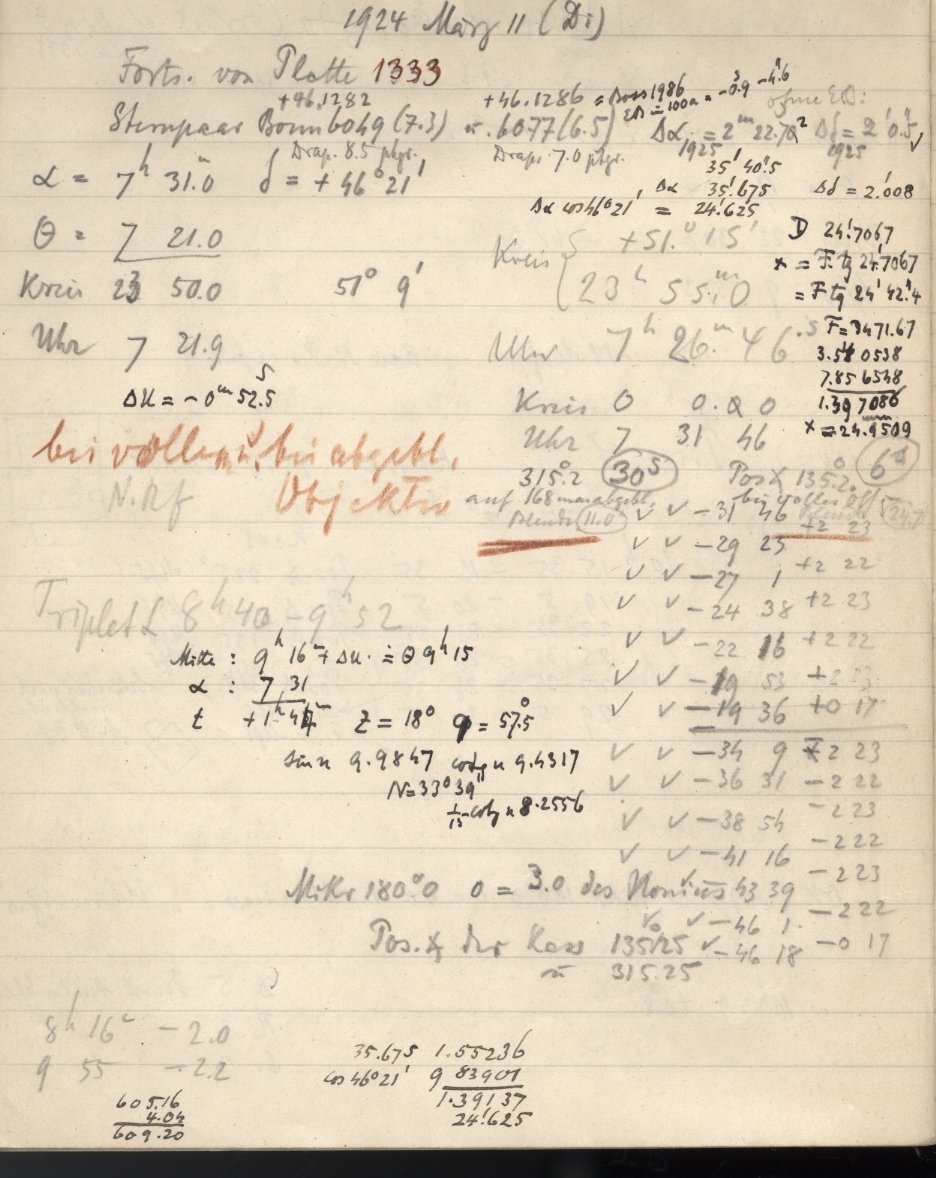 1924 März 11 (Di)
Forts. von Platte 1333
+46.1282 +46.1286 = Boss 1986 -0.9 -4.6
EB in 100a = ohne EB:
Sternpaar Bonn 6049 (7.3) u. 6077 (6.5) Δα 1925 = 2m 22.70 Δδ 1925 = 2' 0.5 ✓
Drap. 8.5 phgr. Drap. 7.0 phgr.
35' 40".5
α = 7h 31.0 δ = +46° 21' Δα 35'.675 Δδ = 2'.008
Δα cos 46°21' = 24'.625
Θ = 7 21.0 Kreis { +51.° 15' D 24'.7067
x = F. tg 24'.7067
Kreis 23 50.0 51° 9' 23h 55m.0 = F tg 24' 42".4
F = 3471.67
Uhr 7 21.9 Uhr 7h 26m 46.s 3.540538
7.856548
ΔU = -0m 52.5s Kreis 0 0.0 0 1.397086
Uhr 7 31 46 x = 24.9509 mm
bei vollem u. bei abgebl. Objektiv
315°.2 (30s) Pos ∡ 135.2° (6s)
N. Rf auf 168 mm abgebl. bei voller Öff
Blende (11.0) 24.7
✓ ✓ -31 46 +2 23
✓ ✓ -29 23 +2 22
✓ ✓ -27 1 +2 23
✓ ✓ -24 38 +2 22
✓ ✓ -22 16 +2 23
✓ ✓ -19 53 +0 17
✓ ✓ -19 36
Triplet L 8h 40 - 9h 52
Mitte : 9h 16m + ΔU. = Θ 9h 15
α : 7 31
t +1h 44m Z = 18° q = 57°.5
sin n 9.9847 cotg n 9.4317
N = 33° 39'
1/15 cotg n 8.2556
✓ ✓ -34 9 -2 23
✓ ✓ -36 31 -2 22
✓ ✓ -38 54 -2 23
✓ ✓ -41 16 -2 22
43 39 -2 23
✓ ✓ -46 1 -2 22
✓ -46 18 -0 17
Mikr 180°.0 0 = 3.0 des Nonius
Pos. ∡ der Kass 135.25
u 315.25
8h 16m -2.0
9 55 -2.2
605.16
4.04
609.20
35.675 1.55236
cos 46°21' 9 83901
1.39137
24'.625